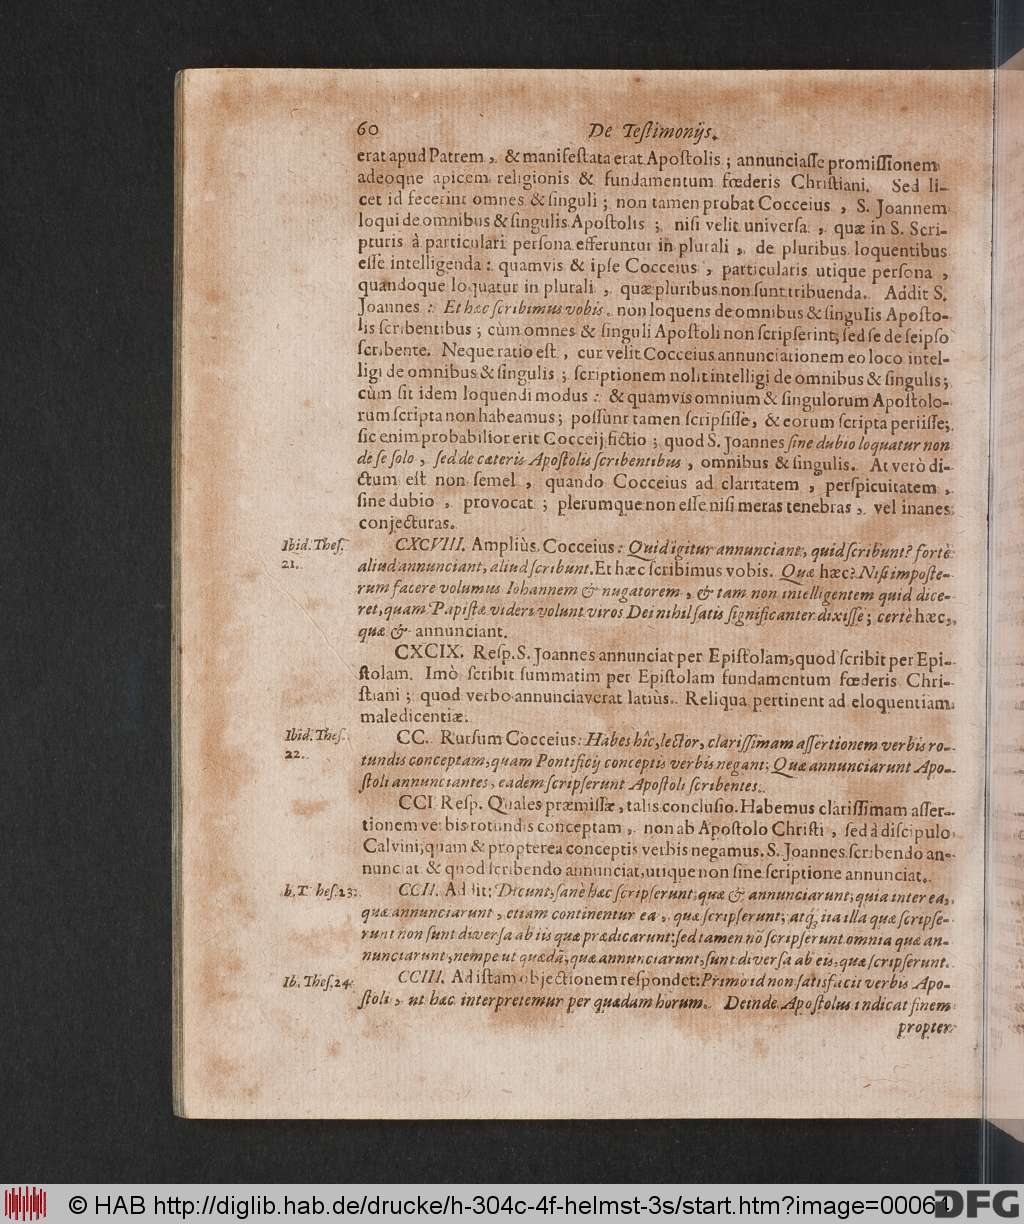 60 De Teſtimonijs.
erat apud Patrem, & manifeſtata erat Apoſtolis; annunciaſſe promiſſionem
adeoqne apicem religionis & fundamentum fœderis Chriſtiani. Sed li-
cet id fecerint omnes & ſinguli; non tamen probat Cocceius, S. Joannem
loqui de omnibus & ſingulis Apoſtolis; niſi velit univerſa, quæ in S. Scri-
pturis à particulari perſona efferuntur in plurali, de pluribus loquentibus
eſſe intelligenda: quamvis & ipſe Cocceius, particularis utique perſona,
quandoque loquatur in plurali, quæ pluribus non ſunt tribuenda. Addit S.
Joannes: Et hæc ſcribimus vobis. non loquens de omnibus & ſingulis Apoſto-
lis ſcribentibus; cùm omnes & ſinguli Apoſtoli non ſcripſerint; ſed ſe de ſeipſo
ſcribente. Neque ratio eſt, cur velit Cocceius annunciationem eo loco intel-
ligi de omnibus & ſingulis; ſcriptionem nolit intelligi de omnibus & ſingulis;
cùm ſit idem loquendi modus: & quamvis omnium & ſingulorum Apoſtolo-
rum ſcripta non habeamus; poſſunt tamen ſcripſiſſe, & eorum ſcripta periiſſe;
ſic enim probabilior erit Cocceij fictio; quod S. Joannes ſine dubio loquatur non
de ſe ſolo, ſed de cæteris Apoſtolis ſcribentibus, omnibus & ſingulis. At verò di-
ctum eſt non ſemel, quando Cocceius ad claritatem, perſpicuitatem,
ſine dubio, provocat; plerumque non eſſe niſi meras tenebras, vel inanes
conjecturas.
Ibid. Theſ. 21.
CXCVIII. Ampliùs Cocceius: Quid igitur annunciant, quid ſcribunt? fortè
aliud annunciant, aliud ſcribunt. Et hæc ſcribimus vobis. Quæ hæc? Niſi impoſto-
rum facere volumus Iohannem & nugatorem, & tam non intelligentem quid dice-
ret, quam Papiſtæ videri volunt viros Dei nihil ſatis ſignificanter dixiſſe; certè hæc,
quæ & annunciant.
CXCIX. Reſp. S. Joannes annunciat per Epiſtolam, quod ſcribit per Epi-
ſtolam. Imò ſcribit ſummatim per Epiſtolam fundamentum fœderis Chri-
ſtiani; quod verbo annunciaverat latiùs. Reliqua pertinent ad eloquentiam
maledicentiæ.
Ibid. Theſ. 22.
CC. Rurſum Cocceius: Habes hîc, lector, clariſſimam aſſertionem verbis ro-
tundis conceptam, quam Pontificij conceptis verbis negant: Quæ annunciarunt Apo-
ſtoli annunciantes, eadem ſcripſerunt Apoſtoli ſcribentes.
CCI Reſp. Quales præmiſſæ, talis concluſio. Habemus clariſſimam aſſer-
tionem verbis rotundis conceptam, non ab Apoſtolo Chriſti, ſed à diſcipulo
Calvini; quam & propterea conceptis verbis negamus. S. Joannes ſcribendo an-
nunciat & quod ſcribendo annunciat, utique non ſine ſcriptione annunciat.
b. T heſ. 23.
CCII. Addit: Dicunt, ſanè hæc ſcripſerunt, quæ & annunciarunt; quia inter ea,
quæ annunciarunt, etiam continentur ea, quæ ſcripſerunt; atq́; ita illa quæ ſcripſe-
runt non ſunt diverſa ab iis quæ prædicarunt: ſed tamen nō ſcripſerunt omnia quæ an-
nunciarunt, nempe ut quædā, quæ annunciarunt, ſunt diverſa ab eis, quæ ſcripſerunt.
Ib. Theſ. 24.
CCIII. Ad iſtam objectionem reſpondet: Primo id non ſatisfacit verbis Apo-
ſtoli, ut hæc interpretemur per quædam horum. Deinde Apoſtolus indicat finem
propter
© HAB http://diglib.hab.de/drucke/h-304c-4f-helmst-3s/start.htm?image=00064
DFG